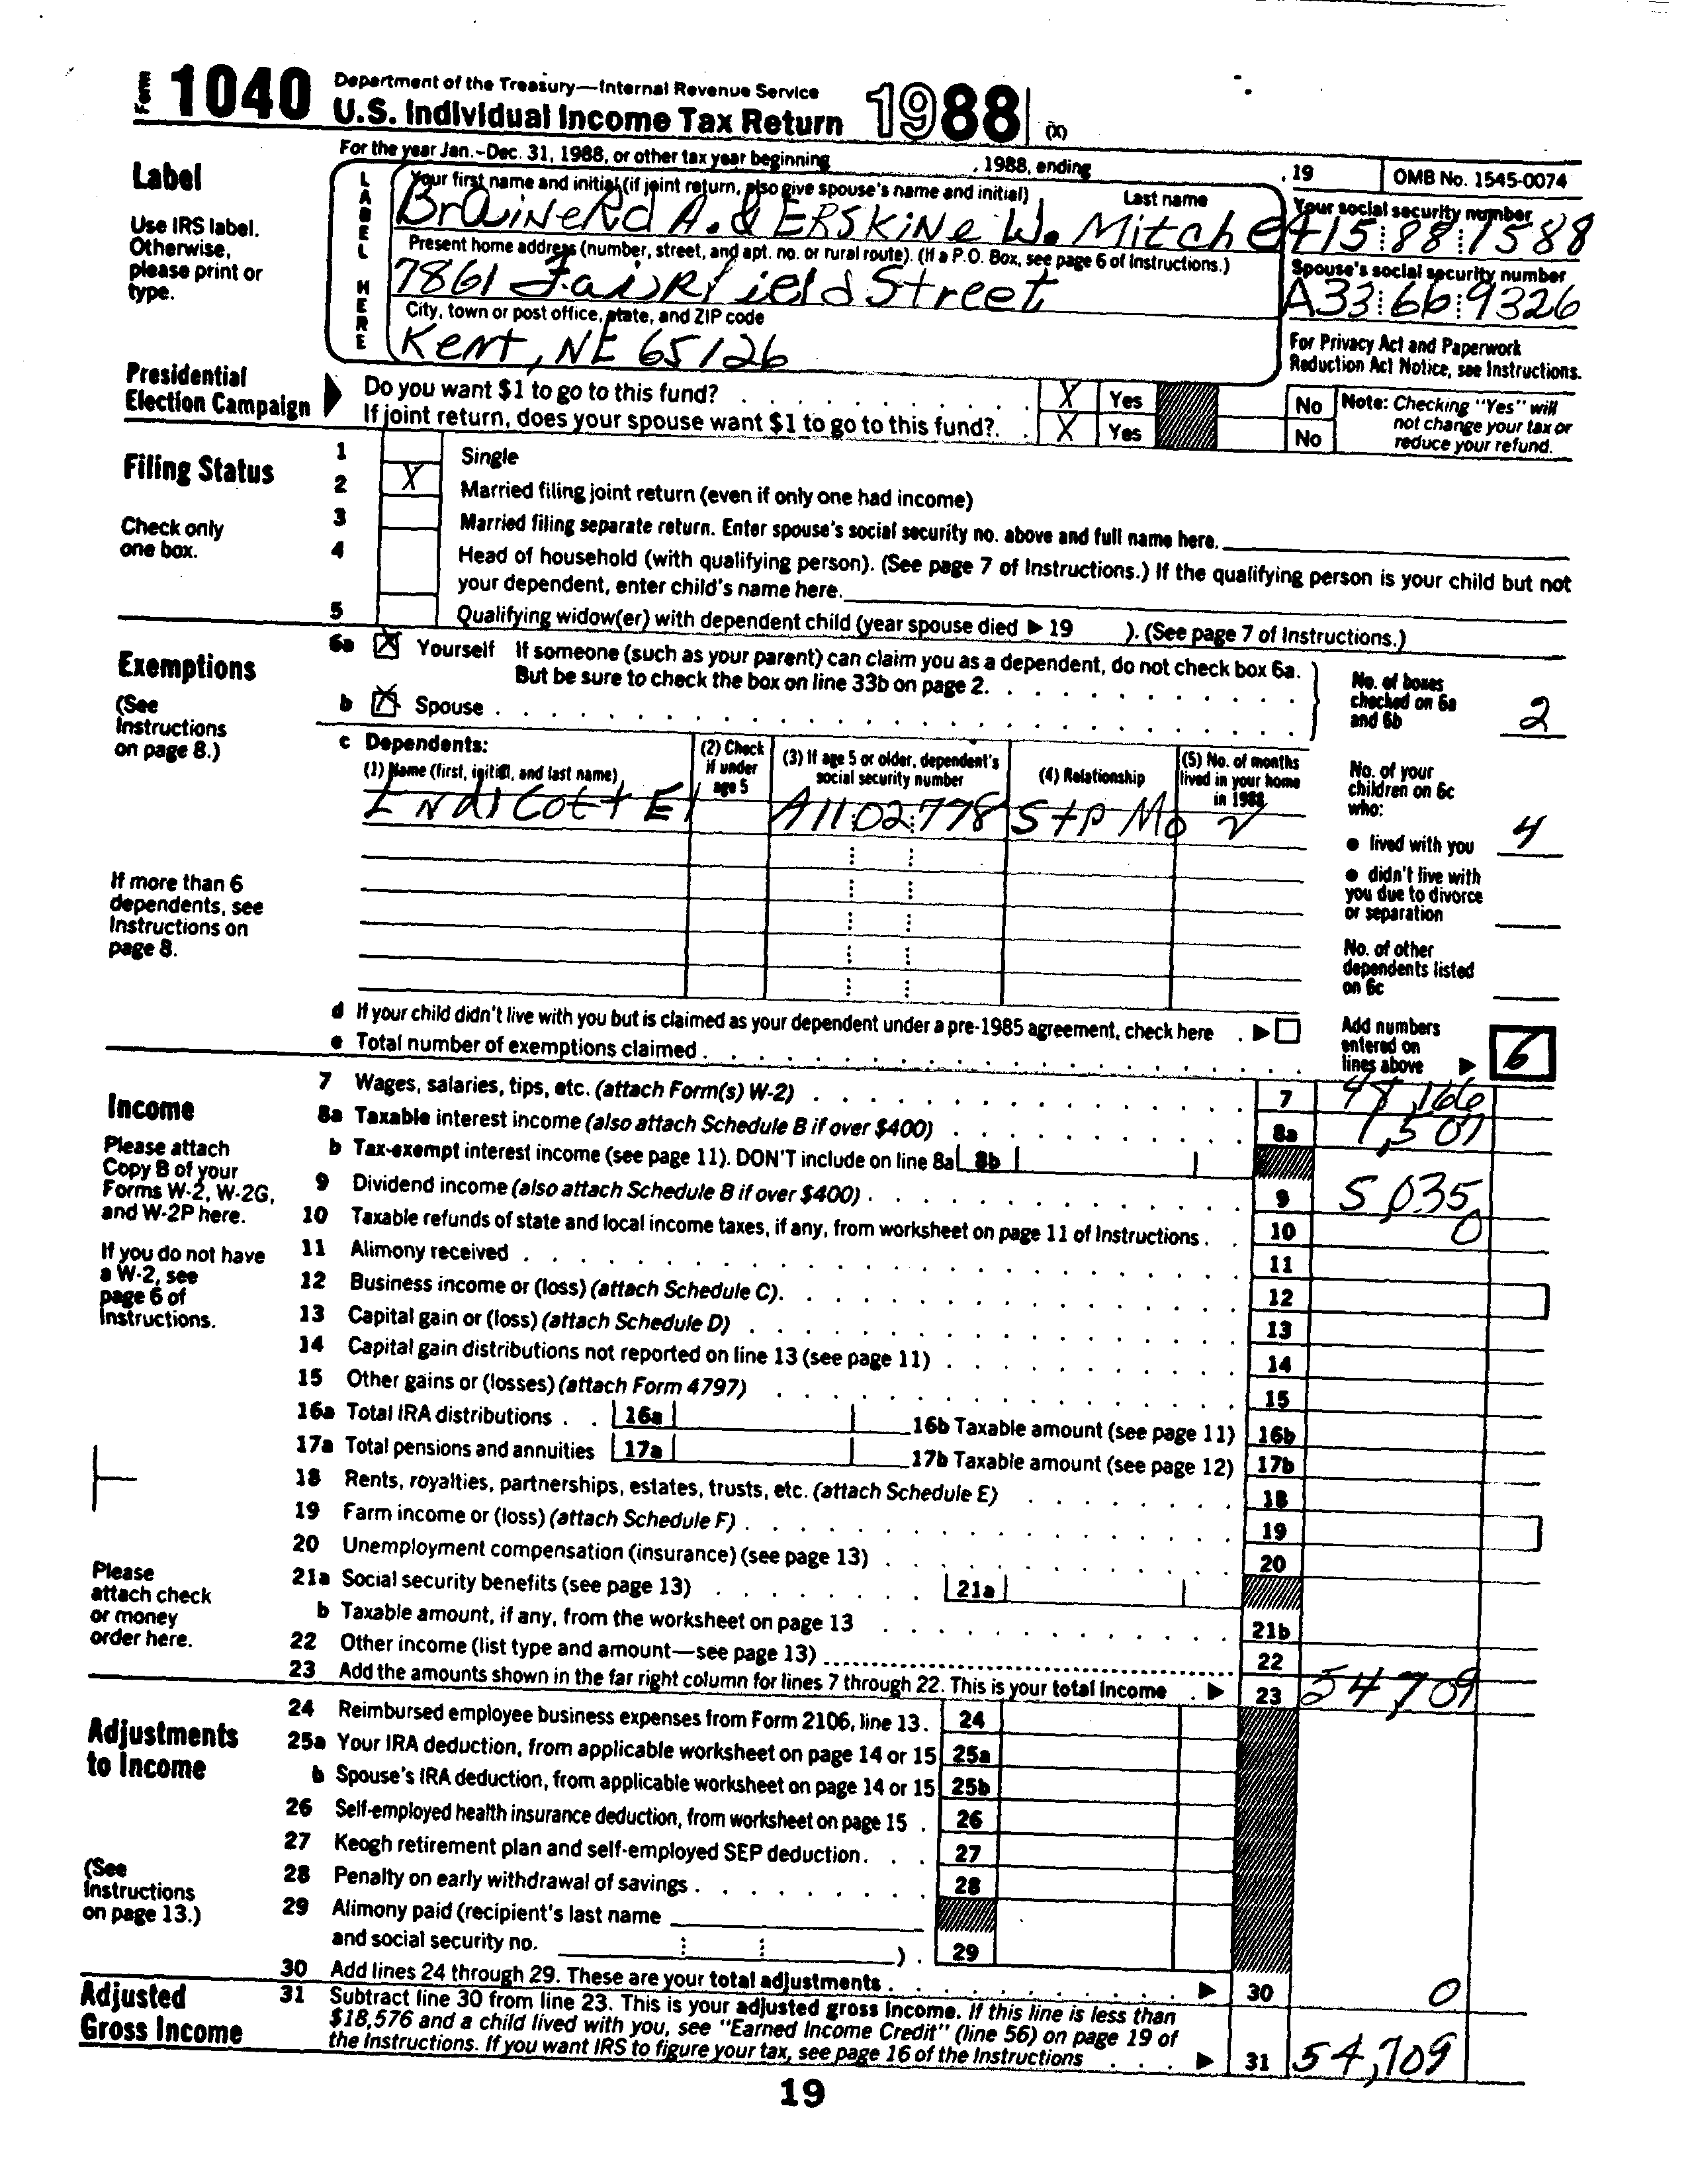 Form 1040 Department of the Treasury—Internal Revenue Service
U.S. Individual Income Tax Return 1988 (X)
For the year Jan.–Dec. 31, 1988, or other tax year beginning , 1988, ending , 19 OMB No. 1545-0074
Label
Use IRS label.
Otherwise,
please print or
type.
LABEL HERE
Your first name and initial (if joint return, also give spouse's name and initial) Last name
BrAiNeRd A. & ERSKiNe W. Mitche
Your social security number
A15:88:7588
Present home address (number, street, and apt. no. or rural route). (If a P.O. Box, see page 6 of Instructions.)
7861 FaiRfield Street
Spouse's social security number
A33:66:9326
City, town or post office, state, and ZIP code
Kent, NE 65126
For Privacy Act and Paperwork
Reduction Act Notice, see Instructions.
Presidential
Election Campaign
Do you want $1 to go to this fund? X Yes No
If joint return, does your spouse want $1 to go to this fund?. X Yes No
Note: Checking "Yes" will
not change your tax or
reduce your refund.
Filing Status
Check only
one box.
1 Single
2 X Married filing joint return (even if only one had income)
3 Married filing separate return. Enter spouse's social security no. above and full name here.
4 Head of household (with qualifying person). (See page 7 of Instructions.) If the qualifying person is your child but not
your dependent, enter child's name here.
5 Qualifying widow(er) with dependent child (year spouse died ▶ 19 ). (See page 7 of Instructions.)
Exemptions
(See
Instructions
on page 8.)
6a X Yourself If someone (such as your parent) can claim you as a dependent, do not check box 6a.
But be sure to check the box on line 33b on page 2.
b X Spouse
No. of boxes
checked on 6a
and 6b 2
c Dependents:
(1) Name (first, initial, and last name)
(2) Check
if under
age 5
(3) If age 5 or older, dependent's
social security number
(4) Relationship
(5) No. of months
lived in your home
in 1988
Endicott E A11:02:778 StP Mo
No. of your
children on 6c
who:
● lived with you 4
● didn't live with
you due to divorce
or separation
No. of other
dependents listed
on 6c
If more than 6
dependents, see
Instructions on
page 8.
d If your child didn't live with you but is claimed as your dependent under a pre-1985 agreement, check here ▶
e Total number of exemptions claimed
Add numbers
entered on
lines above ▶ 6
Income
Please attach
Copy B of your
Forms W-2, W-2G,
and W-2P here.
If you do not have
a W-2, see
page 6 of
Instructions.
Please
attach check
or money
order here.
7 Wages, salaries, tips, etc. (attach Form(s) W-2) 7 48,166
8a Taxable interest income (also attach Schedule B if over $400) 8a 1,507
b Tax-exempt interest income (see page 11). DON'T include on line 8a 8b
9 Dividend income (also attach Schedule B if over $400) 9 5,035
10 Taxable refunds of state and local income taxes, if any, from worksheet on page 11 of Instructions 10 0
11 Alimony received 11
12 Business income or (loss) (attach Schedule C). 12
13 Capital gain or (loss) (attach Schedule D) 13
14 Capital gain distributions not reported on line 13 (see page 11) 14
15 Other gains or (losses) (attach Form 4797) 15
16a Total IRA distributions 16a 16b Taxable amount (see page 11) 16b
17a Total pensions and annuities 17a 17b Taxable amount (see page 12) 17b
18 Rents, royalties, partnerships, estates, trusts, etc. (attach Schedule E) 18
19 Farm income or (loss) (attach Schedule F) 19
20 Unemployment compensation (insurance) (see page 13) 20
21a Social security benefits (see page 13) 21a
b Taxable amount, if any, from the worksheet on page 13 21b
22 Other income (list type and amount—see page 13) 22
23 Add the amounts shown in the far right column for lines 7 through 22. This is your total income ▶ 23 54,709
Adjustments
to Income
(See
Instructions
on page 13.)
24 Reimbursed employee business expenses from Form 2106, line 13. 24
25a Your IRA deduction, from applicable worksheet on page 14 or 15 25a
b Spouse's IRA deduction, from applicable worksheet on page 14 or 15 25b
26 Self-employed health insurance deduction, from worksheet on page 15 26
27 Keogh retirement plan and self-employed SEP deduction 27
28 Penalty on early withdrawal of savings 28
29 Alimony paid (recipient's last name
and social security no. ) 29
30 Add lines 24 through 29. These are your total adjustments ▶ 30 0
Adjusted
Gross Income
31 Subtract line 30 from line 23. This is your adjusted gross income. If this line is less than
$18,576 and a child lived with you, see "Earned Income Credit" (line 56) on page 19 of
the Instructions. If you want IRS to figure your tax, see page 16 of the Instructions ▶ 31 54,709
19